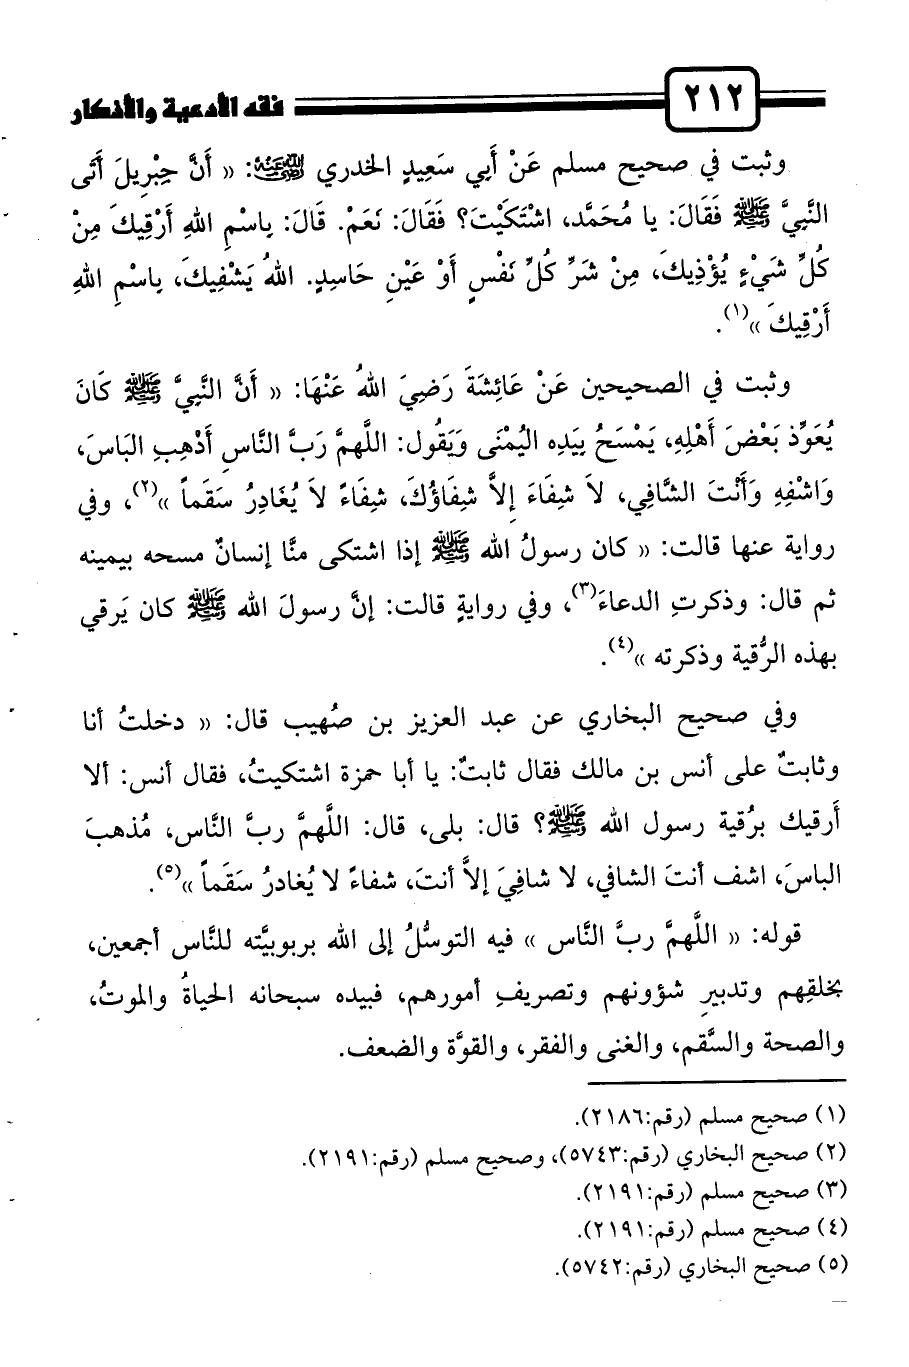 ٢١٢ فقه الأدعية والأذكار
وثبت في صحيح مسلم عَنْ أَبِي سَعِيدٍ الخدري رضي الله عنه: « أَنَّ جِبْرِيلَ أَتَى
النَّبِيَّ ﷺ فَقَالَ: يا مُحَمَّد، اشْتَكَيْتَ؟ فَقَالَ: نَعَمْ. قَالَ: بِاسْمِ اللهِ أَرْقِيكَ مِنْ
كُلِّ شَيْءٍ يُؤْذِيكَ، مِنْ شَرِّ كُلِّ نَفْسٍ أَوْ عَيْنِ حَاسِدٍ. اللهُ يَشْفِيكَ، بِاسْمِ اللهِ
أَرْقِيكَ »(١).
وثبت في الصحيحين عَنْ عَائِشَةَ رَضِيَ اللهُ عَنْهَا: « أَنَّ النَّبِيَّ ﷺ كَانَ
يُعَوِّذ بَعْضَ أَهْلِهِ، يَمْسَحُ بِيَدِه اليُمْنَى وَيَقُول: اللَّهمَّ رَبَّ النَّاسِ أَذْهِبِ البَاسَ،
وَاشْفِهِ وَأَنْتَ الشَّافِي، لاَ شِفَاءَ إِلاَّ شِفَاؤُكَ، شِفَاءً لاَ يُغَادِرُ سَقَماً »(٢)، وفي
رواية عنها قالت: « كان رسولُ الله ﷺ إذا اشتكى منَّا إنسانٌ مسحه بيمينه
ثم قال: وذكرتِ الدعاءَ(٣)، وفي روايةٍ قالت: إنَّ رسولَ الله ﷺ كان يَرقي
بهذه الرُّقية وذكرته »(٤).
وفي صحيح البخاري عن عبد العزيز بن صُهيب قال: « دخلتُ أنا
وثابتٌ على أنس بن مالك فقال ثابتٌ: يا أبا حمزة اشتكيتُ، فقال أنس: ألا
أَرقيك برُقية رسول الله ﷺ؟ قال: بلى، قال: اللَّهمَّ ربَّ النَّاس، مُذهبَ
الباسَ، اشف أنتَ الشافي، لا شافِيَ إلاَّ أنتَ، شفاءً لا يُغادرُ سَقَماً »(٥).
قوله: « اللَّهمَّ ربَّ النَّاس » فيه التوسُّلُ إلى الله بربوبيَّته للنَّاس أجمعين،
بخلقِهم وتدبيرِ شؤونهم وتصريفِ أمورهم، فبيده سبحانه الحياةُ والموتُ،
والصحة والسَّقم، والغنى والفقر، والقوَّة والضعف.
(١) صحيح مسلم (رقم:٢١٨٦).
(٢) صحيح البخاري (رقم:٥٧٤٣)، وصحيح مسلم (رقم:٢١٩١).
(٣) صحيح مسلم (رقم:٢١٩١).
(٤) صحيح مسلم (رقم:٢١٩١).
(٥) صحيح البخاري (رقم:٥٧٤٢).